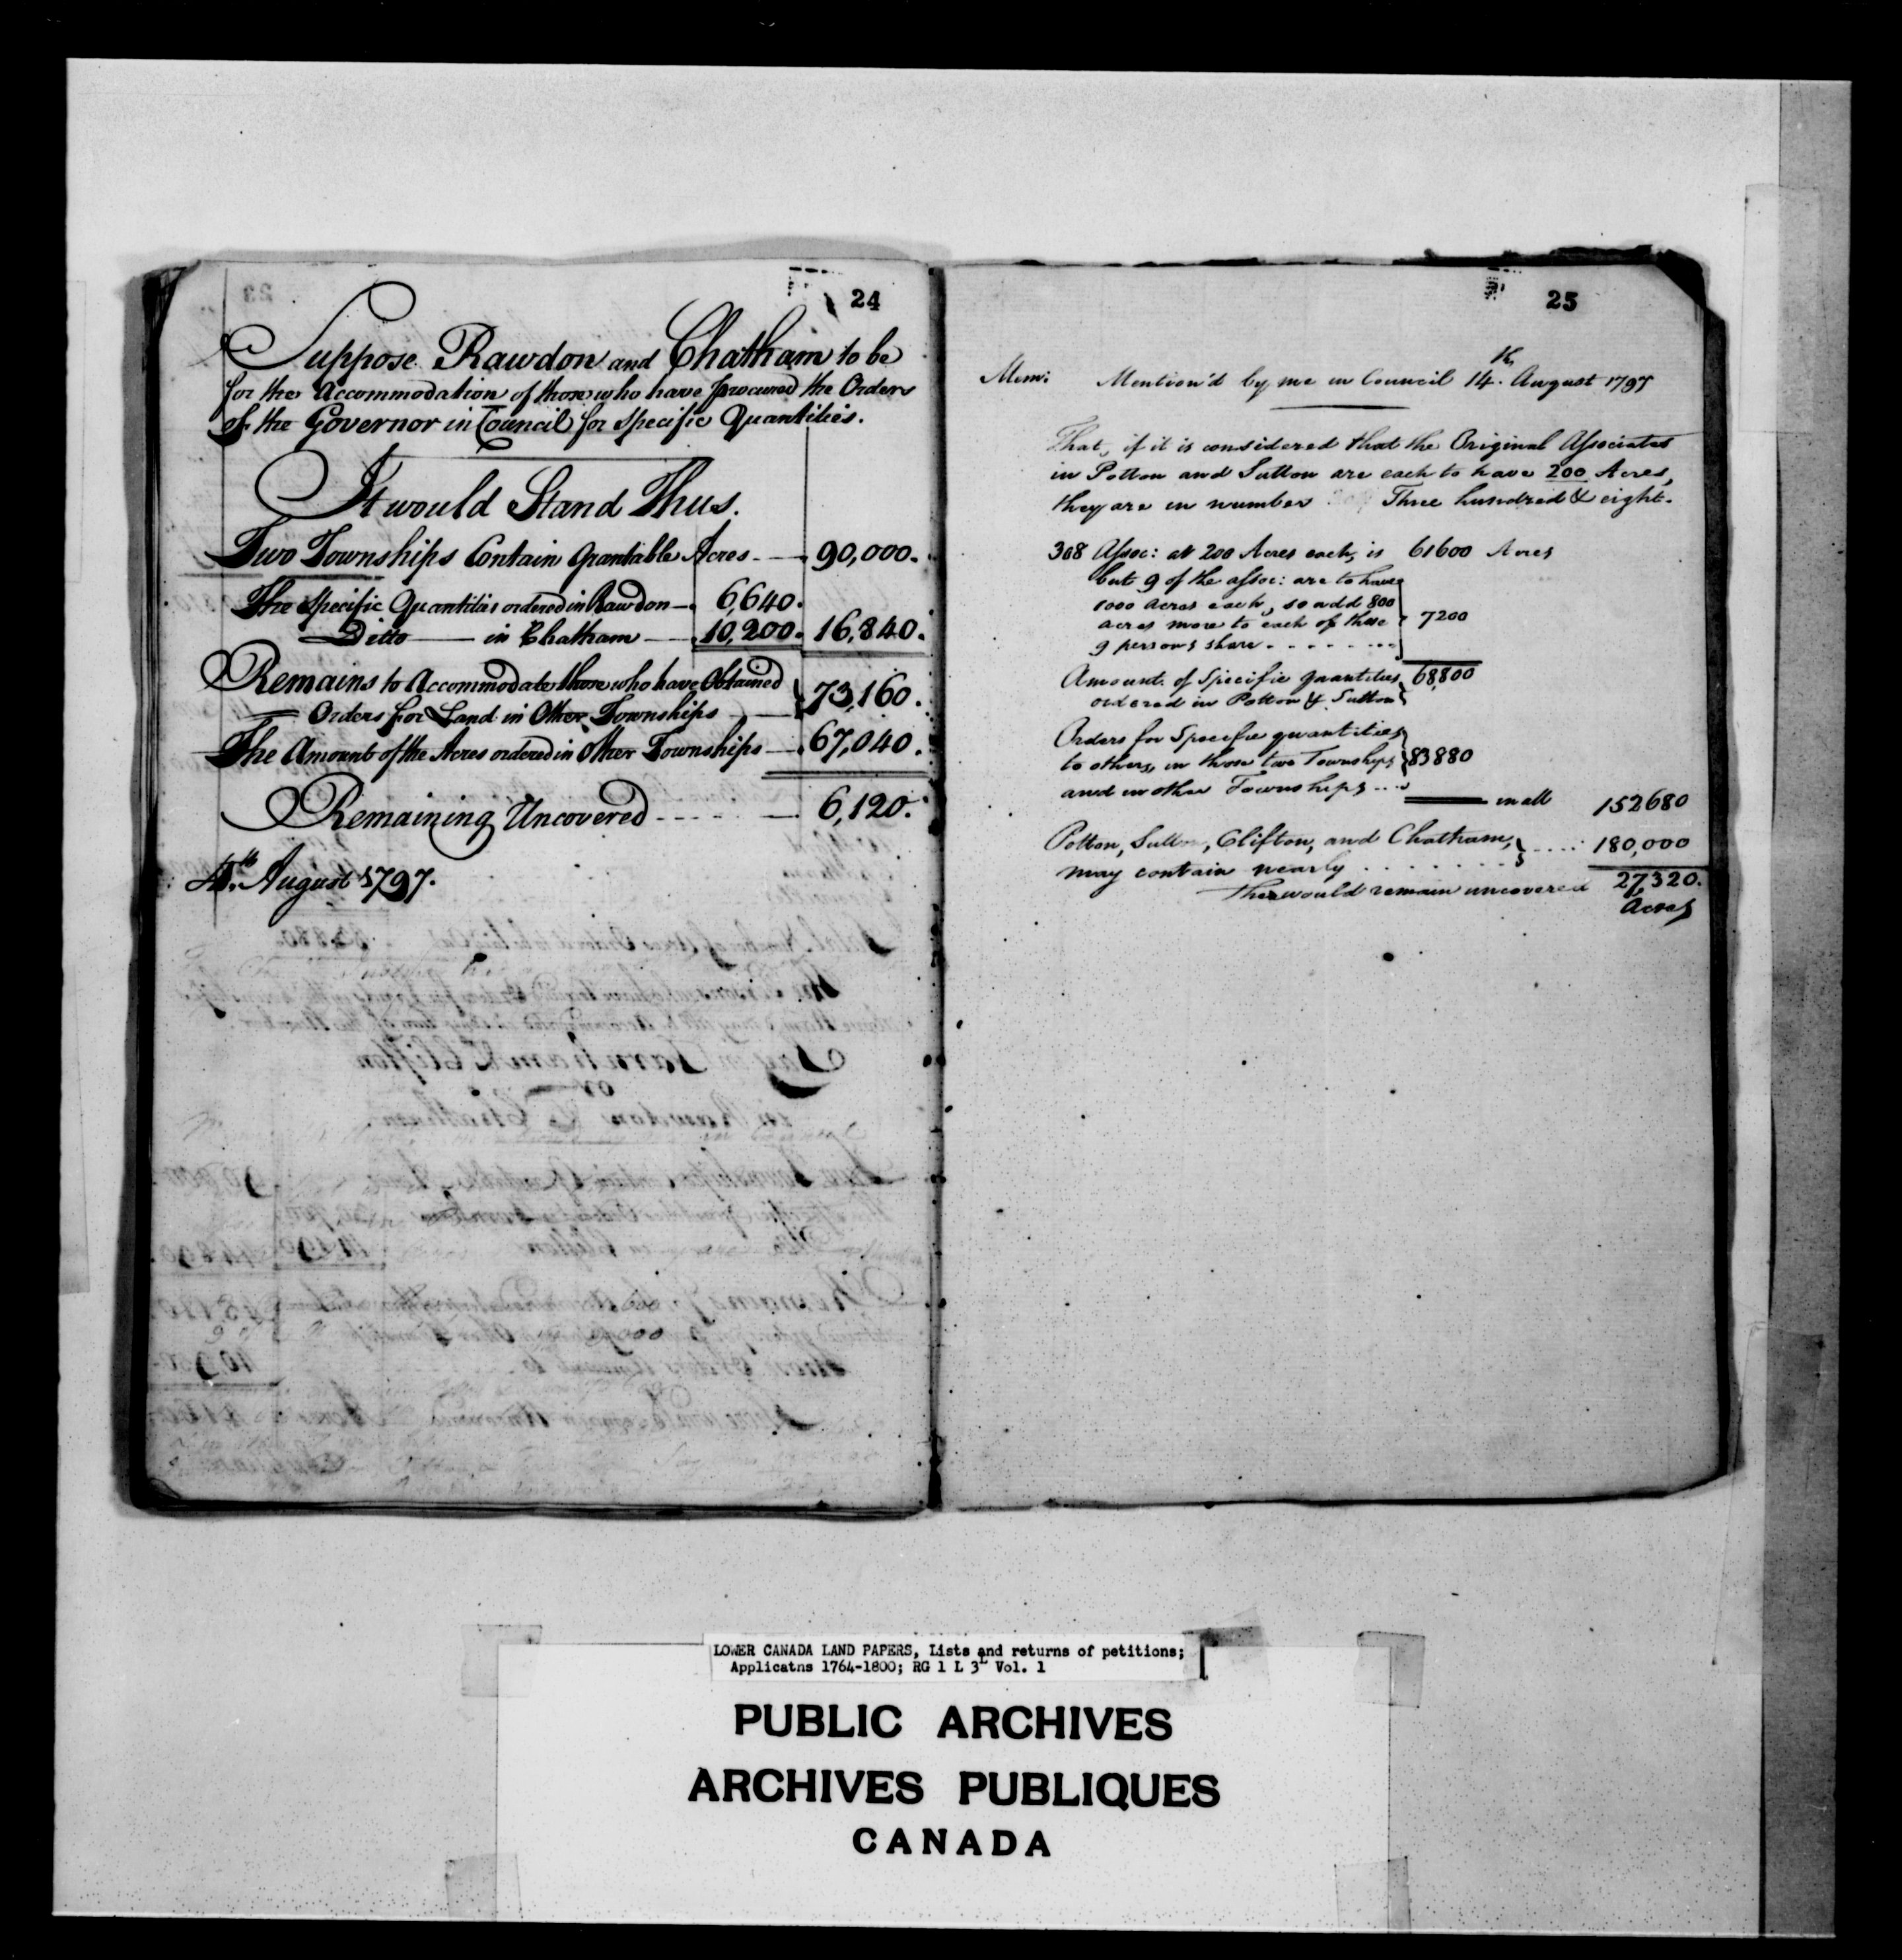 24
Suppose Rawdon and Chatham to be
for the Accommodation of those who have procured the Orders
of the Governor in Council for specific Quantities.
It would Stand Thus.
Two Townships Contain Grantable Acres — 90,000.
The Specific Quantities ordered in Rawdon — 6,640.
Ditto — in Chatham — 10,200. 16,840.
Remains to Accommodate those who have Obtained
Orders for Land in Other Townships — 73,160.
The Amount of the Acres ordered in Other Townships — 67,040.
Remaining Uncovered - - - - - 6,120.
August 1797.
25
Mem: Mention'd by me in Council 14th. August 1797
That, if it is considered that the Original Associates
in Potton and Sutton are each to have 200 Acres,
they are in number Three hundred & eight.
308 Assoc: at 200 Acres each, is 61600 Acres
but 9 of the assoc: are to have
1000 acres each, so add 800
acres more to each of these 7200
9 persons share - - - - - - -
Amount of Specific quantities 68,800
ordered in Potton & Sutton
Orders for Specific quantities
to others, in those two Townships 83880
and in other Townships ...
in all 152680
Potton, Sutton, Clifton, and Chatham, .... 180,000
may contain nearly . . . . . . .
there would remain uncovered 27,320.
Acres
LOWER CANADA LAND PAPERS, Lists and returns of petitions;
Applicatns 1764-1800; RG 1 L 3L Vol. 1
PUBLIC ARCHIVES
ARCHIVES PUBLIQUES
CANADA